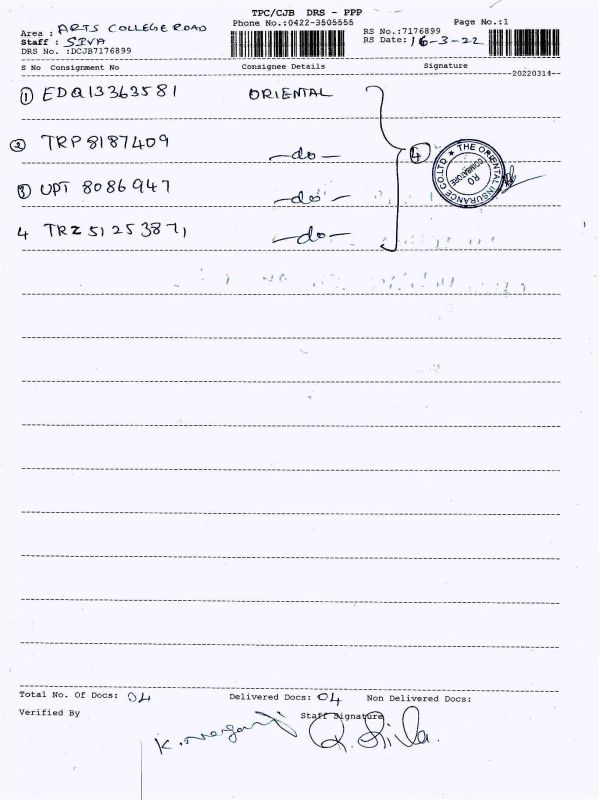 TPC/CJB DRS - PPP
Area : ARTS COLLEGE ROAD Phone No.:0422-3505555 RS No.:7176899 Page No.:1
Staff : SIVA RS Date: 16-3-22
DRS No. :DCJB7176899
S No Consignment No Consignee Details Signature
--20220314--
1 EDQ13363581 ORIENTAL
2 TRP8187409 -do-
3 UPT 8086947 -do-
4 TRZ 51253871 -do-
4
THE ORIENTAL INSURANCE CO.LTD ★
RO
COIMBATORE
Total No. Of Docs: 04 Delivered Docs: 04 Non Delivered Docs:
Verified By Staff Signature
R. Siva.